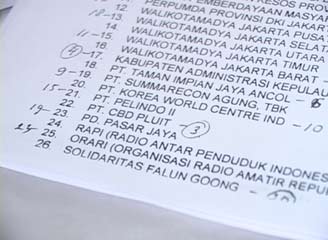 RESOS PROV
EMBERDAYAAN MASYAR
PERPUMDA PROVINSI DKI JAKARTA
12. WALIKOTAMADYA JAKARTA PUSA
13. WALIKOTAMADYA JAKARTA SELAT
14. WALIKOTAMADYA JAKARTA UTARA
15. WALIKOTAMADYA JAKARTA TIMUR
16. WALIKOTAMADYA JAKARTA BARAT
17. KABUPATEN ADMINISTRASI KEPULAU
18. PT. TAMAN IMPIAN JAYA ANCOL
19. PT. SUMMARECON AGUNG, TBK
20. PT. KOREA WORLD CENTRE IND - 10
21. PT. PELINDO II
22. PT. CBD PLUIT
23. PD. PASAR JAYA 3
24. RAPI (RADIO ANTAR PENDUDUK INDONES
25. ORARI (ORGANISASI RADIO AMATIR REPU
26 SOLIDARITAS FALUN GOONG